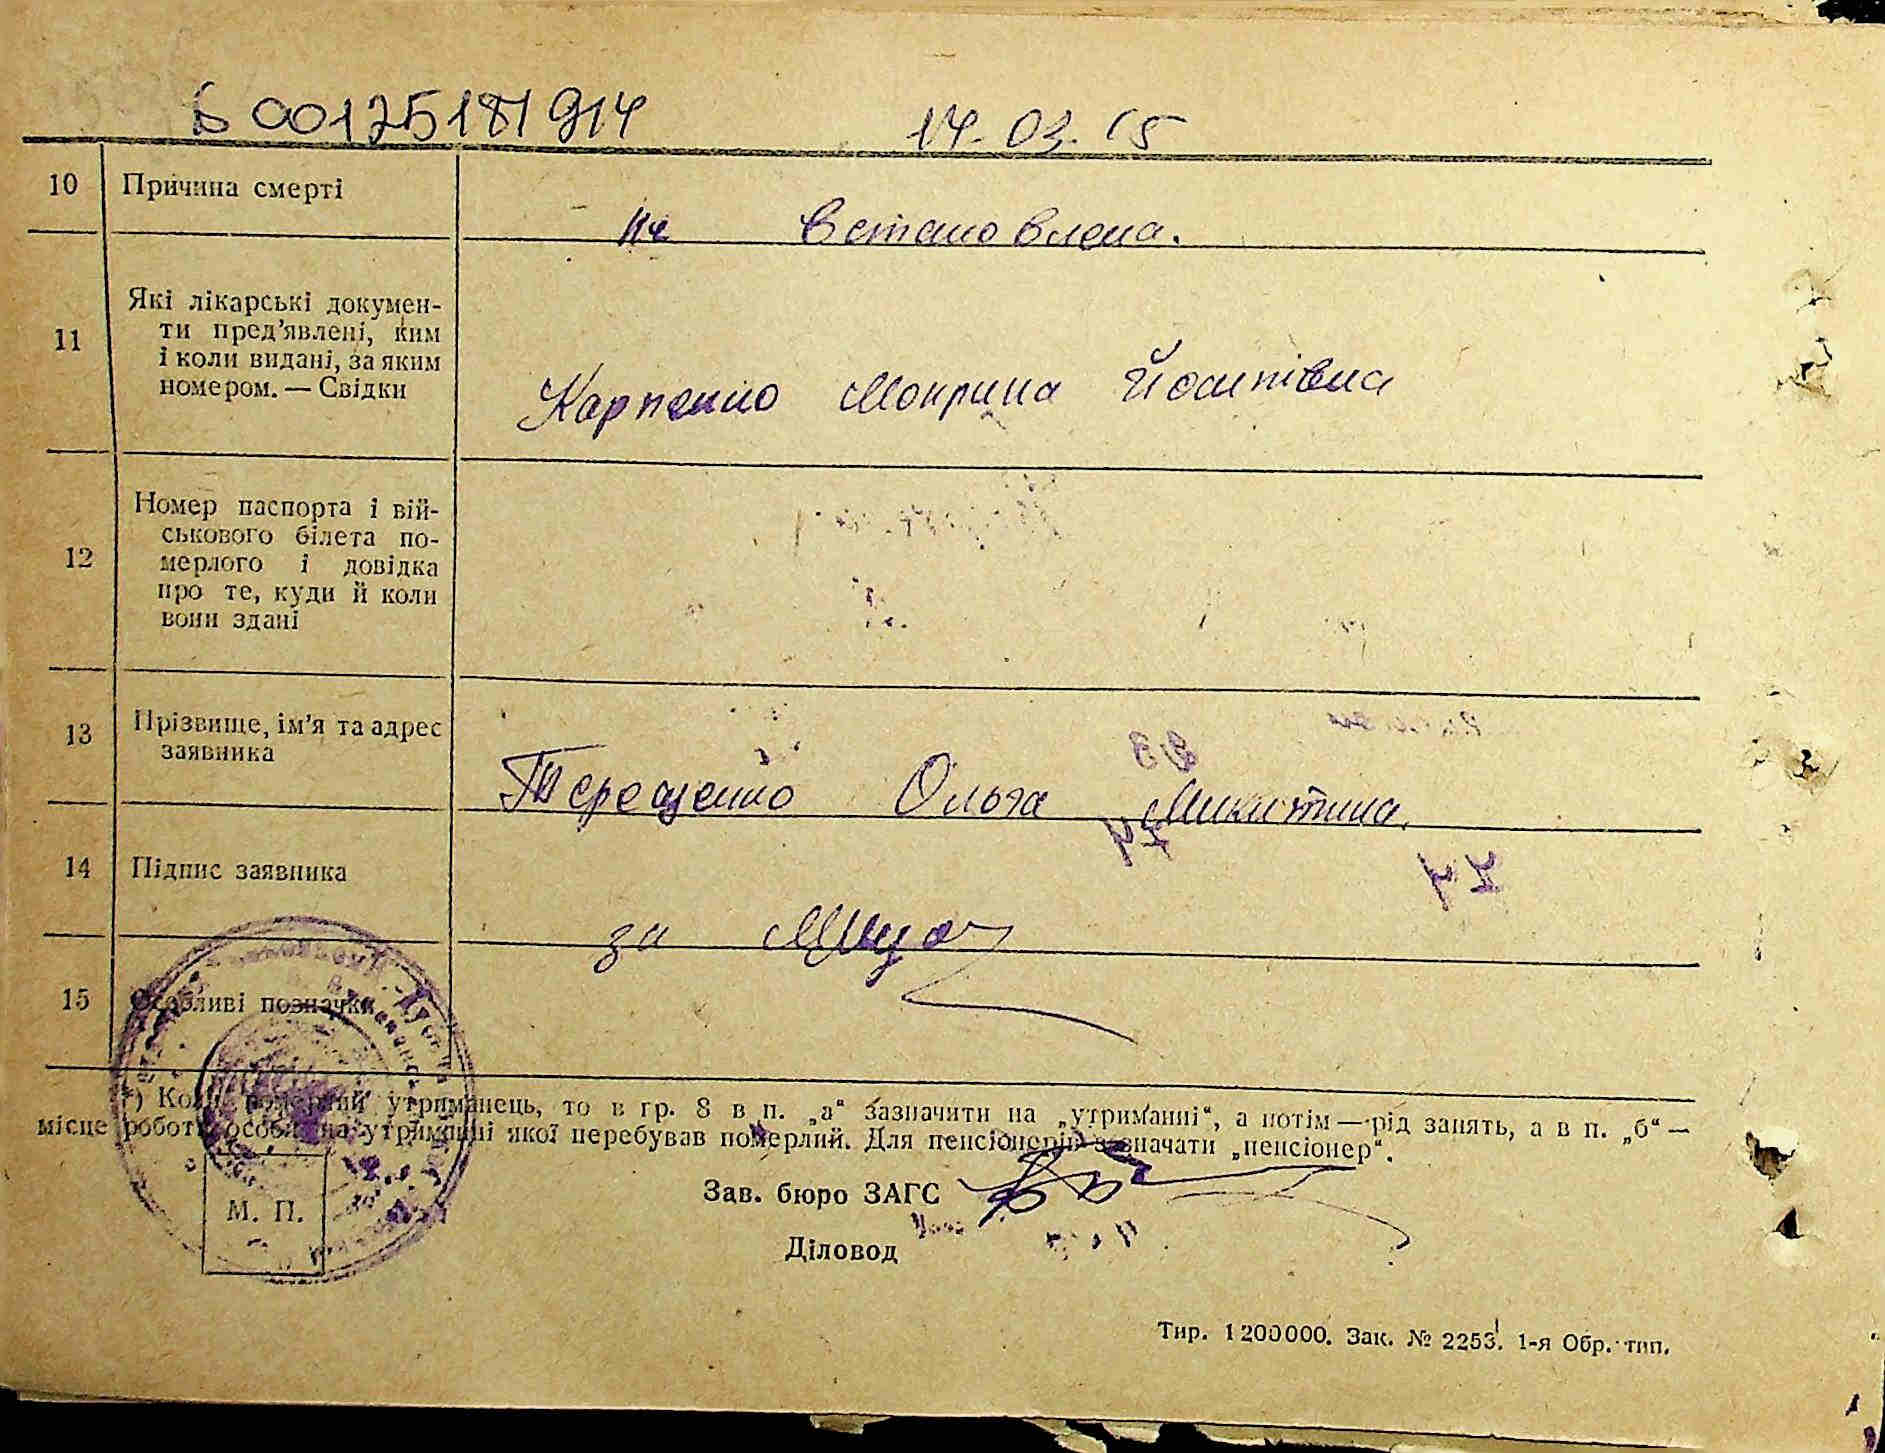 Б 00125181914 14.03.15
10 Причина смерті
не встановлена.
11 Які лікарські докумен-
ти пред'явлені, ким
і коли видані, за яким
номером. — Свідки
Карпенко Мокрина Йосипівна
12 Номер паспорта і вій-
ськового білета по-
мерлого і довідка
про те, куди й коли
вони здані
13 Прізвище, ім'я та адрес
заявника
Терещенко Ольга Микитина.
14 Підпис заявника
за
15 Особливі позначки
*) Коли померлий утриманець, то в гр. 8 в п. „а“ зазначити на „утриманні“, а потім — рід занять, а в п. „б“ —
місце роботи особи, на утриманні якої перебував померлий. Для пенсіонерів зазначати „пенсіонер“.
М. П.
Зав. бюро ЗАГС
Діловод
Тир. 1200000. Зак. № 2253. 1-я Обр. тип.